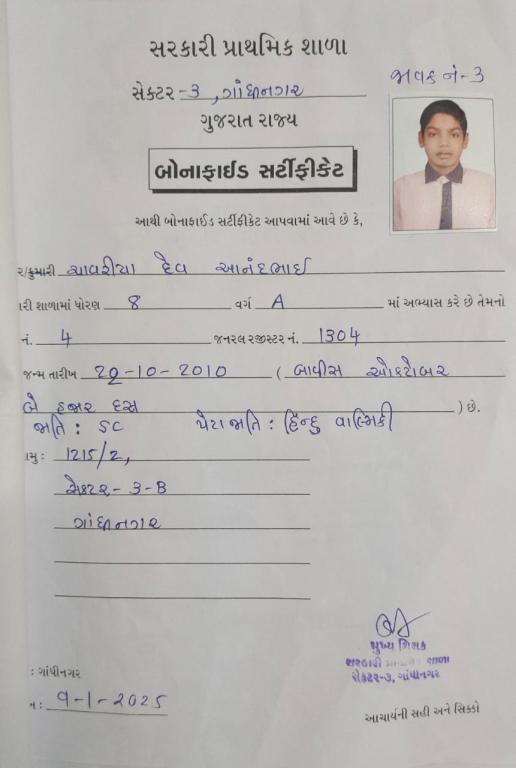 સરકારી પ્રાથમિક શાળા
જાવક નં - 3
સેક્ટર - 3, ગાંધીનગર
ગુજરાત રાજ્ય
બોનાફાઈડ સર્ટીફીકેટ
આથી બોનાફાઈડ સર્ટીફીકેટ આપવામાં આવે છે કે,
ર/કુમારી ચાવરીયા દેવ આનંદભાઈ
રી શાળામાં ધોરણ 8 વર્ગ A માં અભ્યાસ કરે છે તેમનો
નં. 4 જનરલ રજીસ્ટર નં. 1304
જન્મ તારીખ 22-10-2010 ( બાવીસ ઓક્ટોબર
બે હજાર દસ ) છે.
જાતિ : SC પેટા જાતિ : હિન્દુ વાલ્મિકી
મુ : 1215/2,
સેક્ટર - 3-B
ગાંધીનગર
મુખ્ય શિક્ષક
સરકારી પ્રાથમિક શાળા
સેક્ટર-૩, ગાંધીનગર
: ગાંધીનગર
ખ : 9-1-2025
આચાર્યની સહી અને સિક્કો